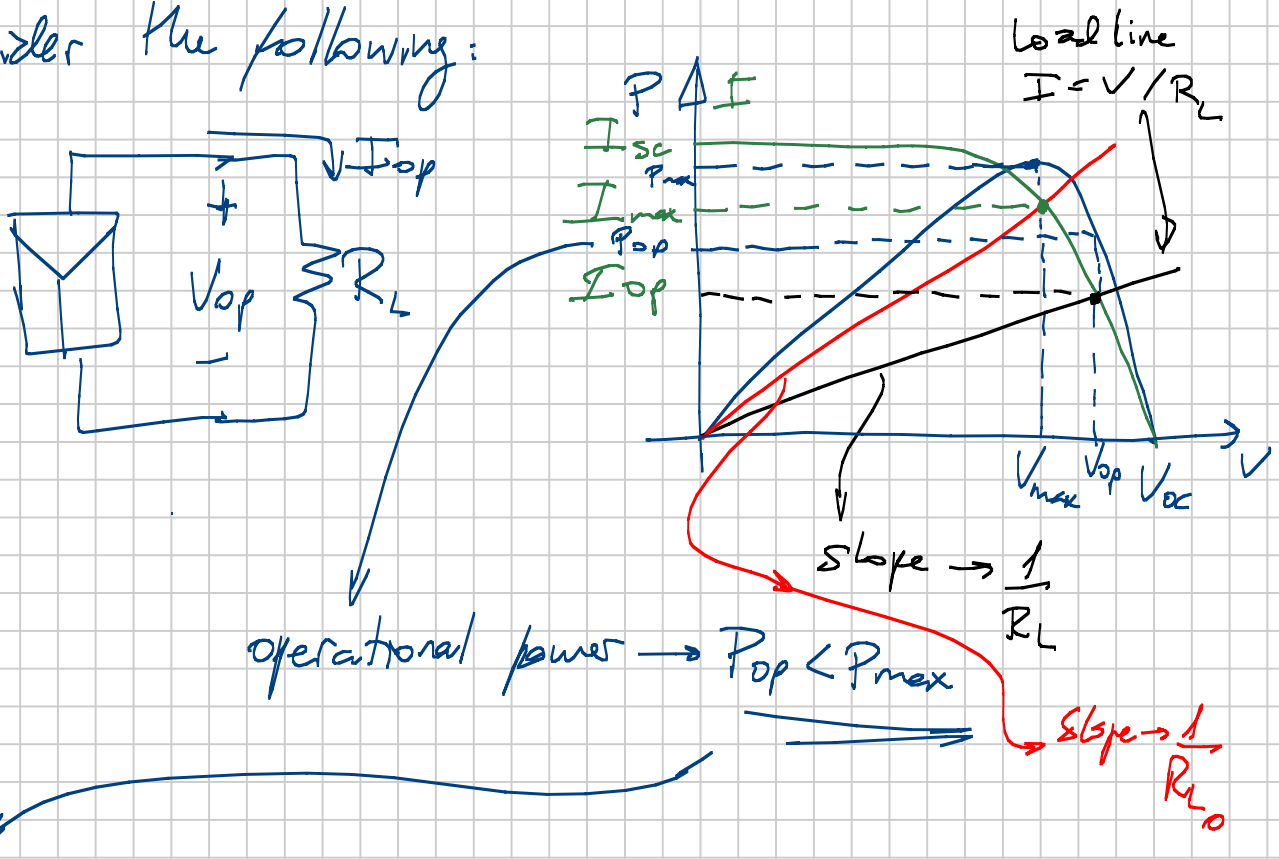 the following:
Load line
I = V/R_L
P I
I_sc
P_max
I_max
P_op
I_op
I_op
+
V_op
R_L
−
V_max V_op V_oc V
slope → 1/R_L
operational power → P_op < P_max
slope → 1/R_L_o